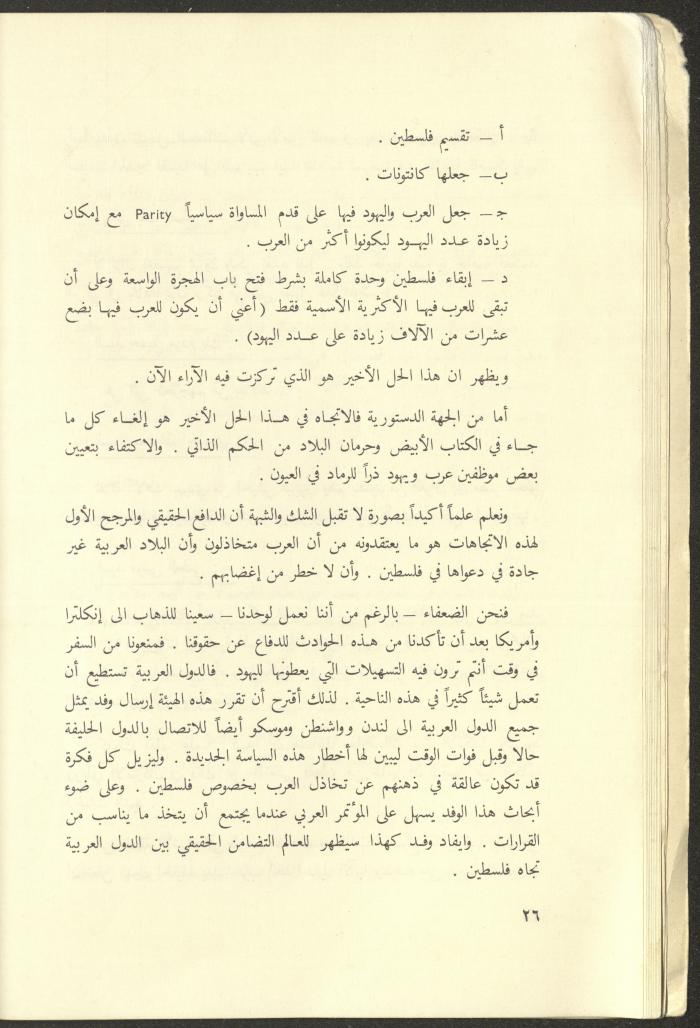 أ — تقسيم فلسطين .
ب — جعلها كانتونات .
ج — جعل العرب واليهود فيها على قدم المساواة سياسياً Parity مع إمكان
زيادة عدد اليهود ليكونوا أكثر من العرب .
د — إبقاء فلسطين وحدة كاملة بشرط فتح باب الهجرة الواسعة وعلى أن
تبقى للعرب فيها الأكثرية الأسمية فقط ( أعني أن يكون للعرب فيها بضع
عشرات من الآلاف زيادة على عدد اليهود) .
ويظهر ان هذا الحل الأخير هو الذي تركزت فيه الآراء الآن .
أما من الجهة الدستورية فالاتجاه في هذا الحل الأخير هو إلغاء كل ما
جاء في الكتاب الأبيض وحرمان البلاد من الحكم الذاتي . والاكتفاء بتعيين
بعض موظفين عرب ويهود ذراً للرماد في العيون .
ونعلم علماً أكيداً بصورة لا تقبل الشك والشبهة أن الدافع الحقيقي والمرجح الأول
لهذه الاتجاهات هو ما يعتقدونه من أن العرب متخاذلون وأن البلاد العربية غير
جادة في دعواها في فلسطين . وأن لا خطر من إغضابهم .
فنحن الضعفاء — بالرغم من أننا نعمل لوحدنا — سعينا للذهاب الى إنكلترا
وأمريكا بعد أن تأكدنا من هذه الحوادث للدفاع عن حقوقنا . فمنعونا من السفر
في وقت أنتم ترون فيه التسهيلات التي يعطونها لليهود . فالدول العربية تستطيع أن
تعمل شيئاً كثيراً في هذه الناحية . لذلك أقترح أن تقرر هذه الهيئة إرسال وفد يمثل
جميع الدول العربية الى لندن وواشنطن وموسكو أيضاً للاتصال بالدول الحليفة
حالا وقبل فوات الوقت ليبين لها أخطار هذه السياسة الجديدة . وليزيل كل فكرة
قد تكون عالقة في ذهنهم عن تخاذل العرب بخصوص فلسطين . وعلى ضوء
أبحاث هذا الوفد يسهل على المؤتمر العربي عندما يجتمع أن يتخذ ما يناسب من
القرارات . وايفاد وفد كهذا سيظهر للعالم التضامن الحقيقي بين الدول العربية
تجاه فلسطين .
٢٦